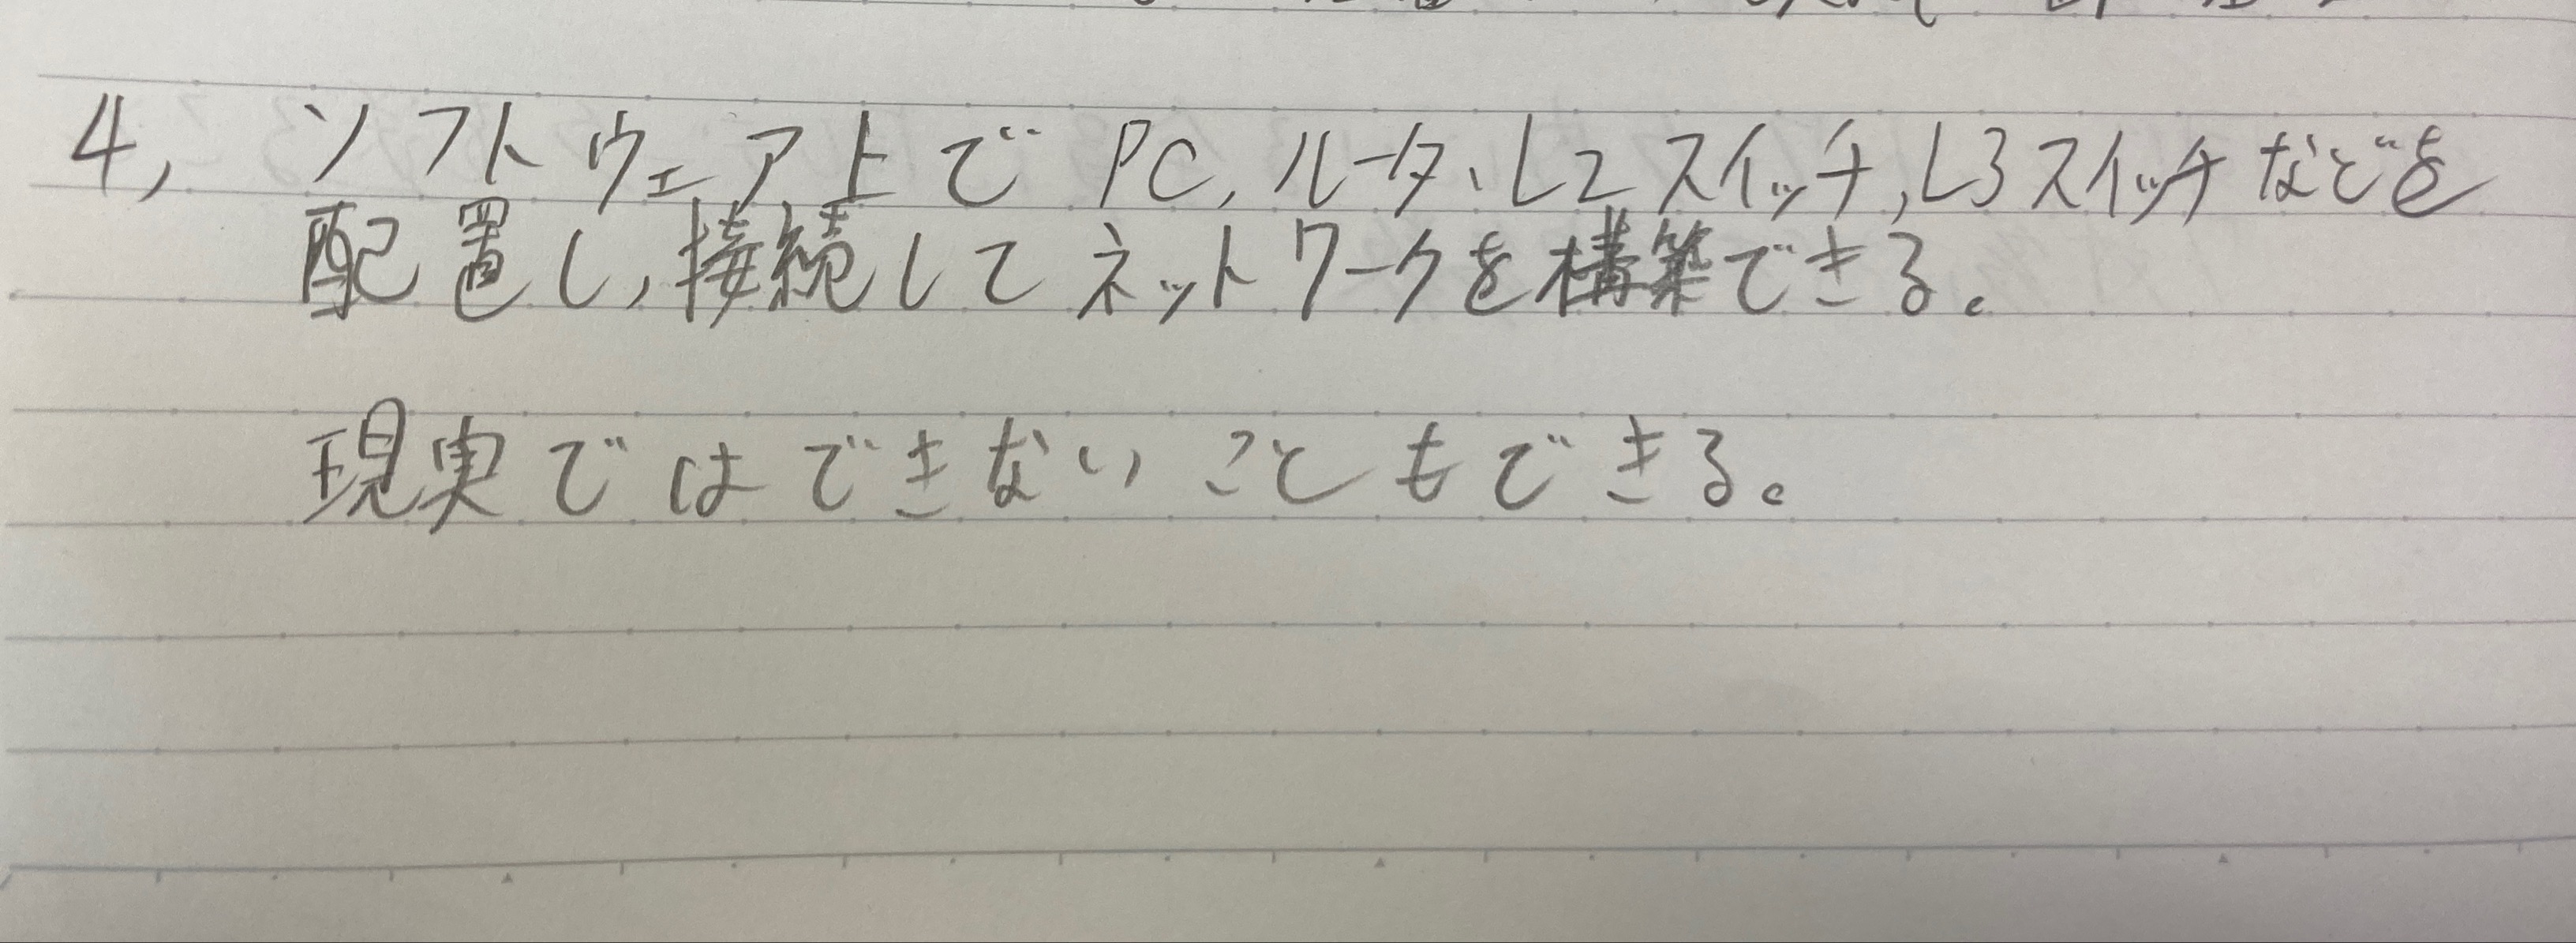 4, ソフトウェア上でPC, ルータ、L2スイッチ, L3スイッチなどを
配置し, 接続してネットワークを構築できる。
現実ではできないこともできる。